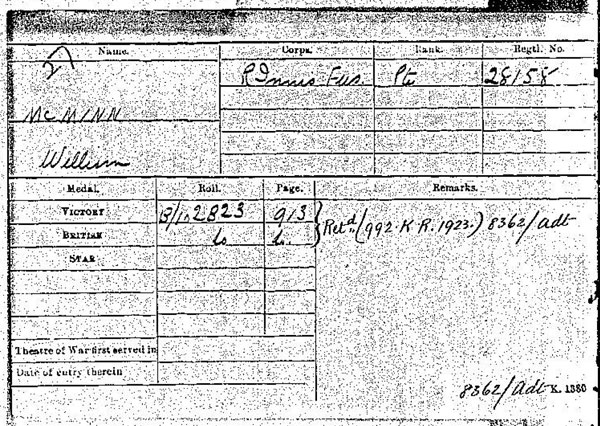 Name. Corps. Rank. Regtl. No.
2) R Innis Fus. Pte 28158
McMINN
William
Medal. Roll. Page. Remarks.
VICTORY B/102823 913 } Retd. (992. K R. 1923.) 8362/adt
BRITISH do do.
STAR
Theatre of War first served in
Date of entry therein
8362/Adt K. 1380